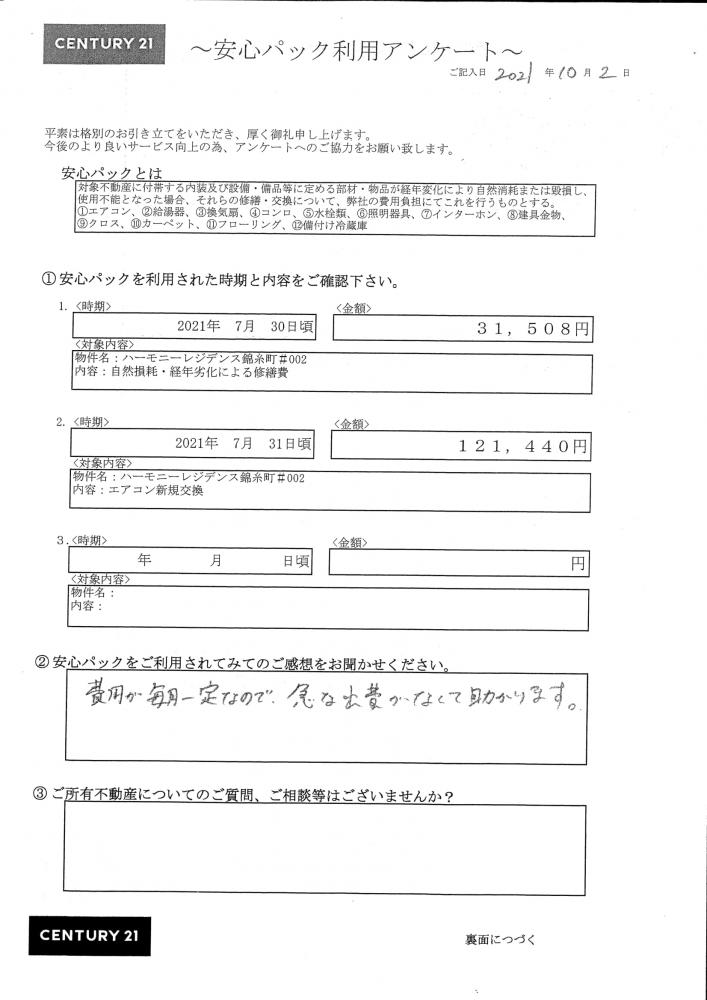 CENTURY 21
～安心パック利用アンケート～
ご記入日 2021 年 10 月 2 日
平素は格別のお引き立てをいただき、厚く御礼申し上げます。
今後のより良いサービス向上の為、アンケートへのご協力をお願い致します。
安心パックとは
対象不動産に付帯する内装及び設備・備品等に定める部材・物品が経年変化により自然消耗または毀損し、
使用不能となった場合、それらの修繕・交換について、弊社の費用負担にてこれを行うものとする。
①エアコン、②給湯器、③換気扇、④コンロ、⑤水栓類、⑥照明器具、⑦インターホン、⑧建具金物、
⑨クロス、⑩カーペット、⑪フローリング、⑫備付け冷蔵庫
①安心パックを利用された時期と内容をご確認下さい。
1. 〈時期〉 〈金額〉
2021年 7月 30日頃 31，508円
〈対象内容〉
物件名：ハーモニーレジデンス錦糸町＃002
内容：自然損耗・経年劣化による修繕費
2. 〈時期〉 〈金額〉
2021年 7月 31日頃 121，440円
〈対象内容〉
物件名：ハーモニーレジデンス錦糸町＃002
内容：エアコン新規交換
3. 〈時期〉 〈金額〉
年 月 日頃 円
〈対象内容〉
物件名：
内容：
②安心パックをご利用されてみてのご感想をお聞かせください。
費用が毎月一定なので、急な出費がなくて助かります。
③ご所有不動産についてのご質問、ご相談等はございませんか？
CENTURY 21
裏面につづく